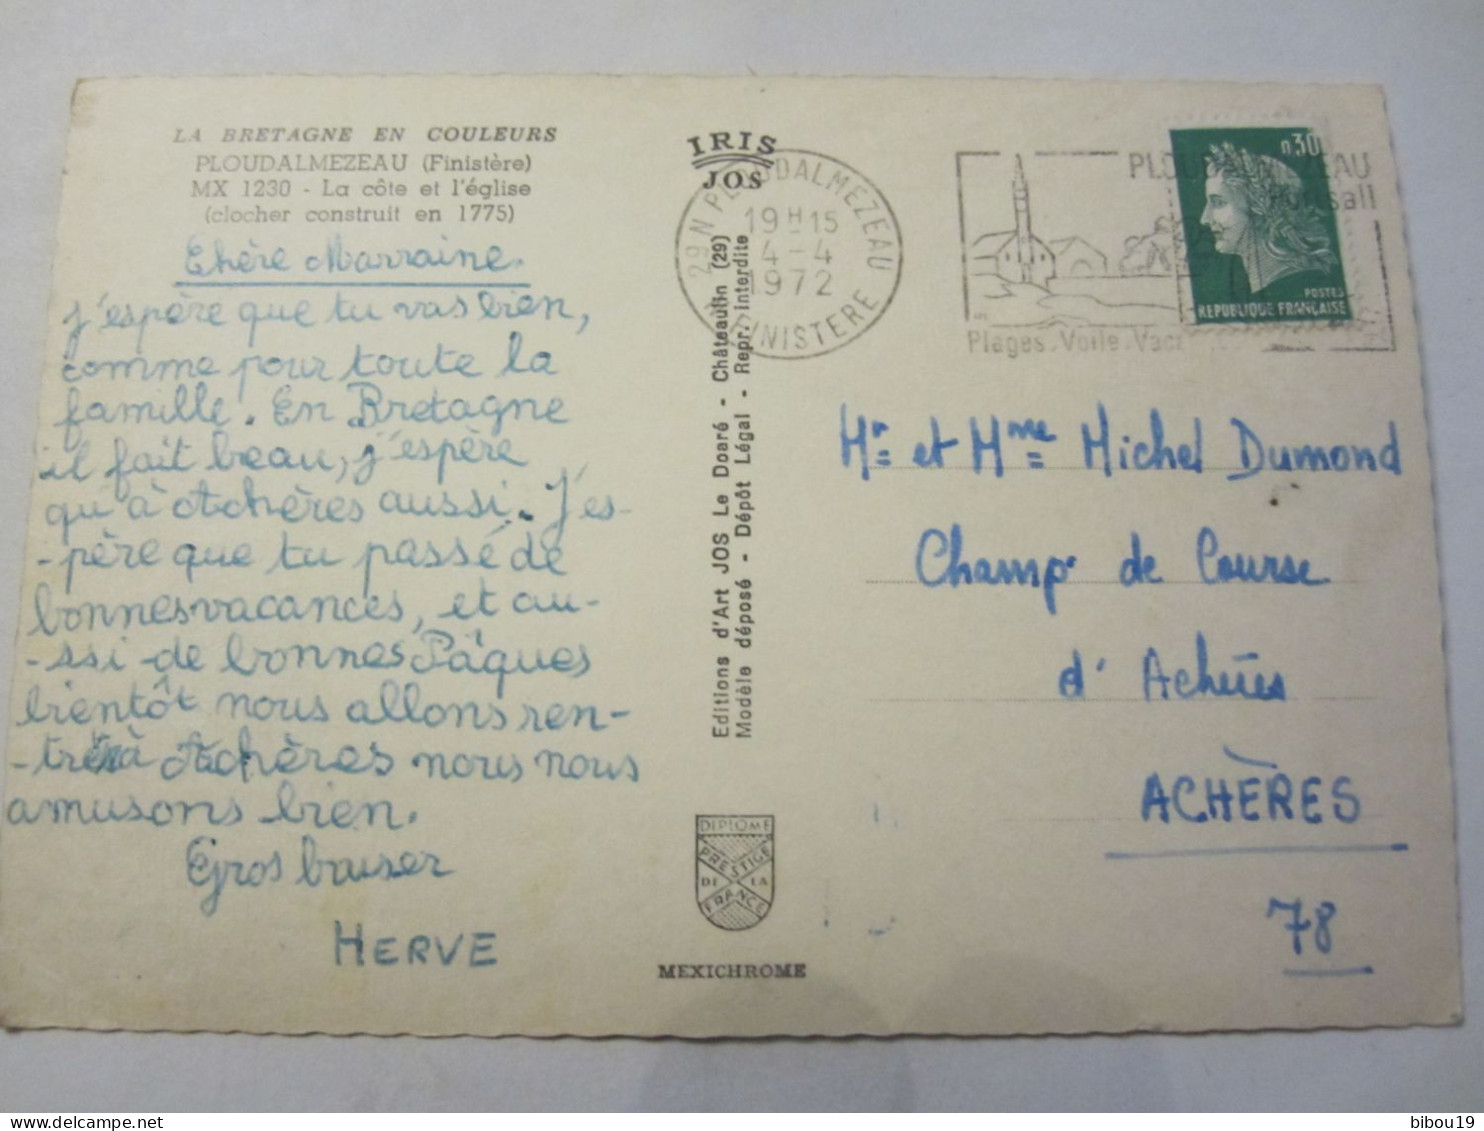 LA BRETAGNE EN COULEURS
PLOUDALMEZEAU (Finistère)
MX 1230 - La côte et l'église
(clocher construit en 1775)
Chère Marraine.
j'espère que tu vas bien,
comme pour toute la
famille. En Bretagne
il fait beau, j'espère
qu'à Achères aussi. J'es-
-père que tu passé de
bonnes vacances, et au-
-ssi de bonnes Pâques
bientôt nous allons ren-
-trer à Achères nous nous
amusons bien.
Gros baiser
HERVE
IRIS
JOS
Editions d'Art JOS Le Doaré - Châteaulin (29)
Modèle déposé - Dépôt Légal - Repr. interdite
DIPLOME
PRESTIGE
DE LA
FRANCE
MEXICHROME
29 N PLOUDALMEZEAU
19H15
4-4
1972
FINISTERE
PLOUDALMEZEAU
Portsall
Plages. Voile. Vac
0,30
POSTES
REPUBLIQUE FRANÇAISE
Mr et Mme Michel Dumond
Champ de Course
d'Achères
ACHÈRES
78
bibou19